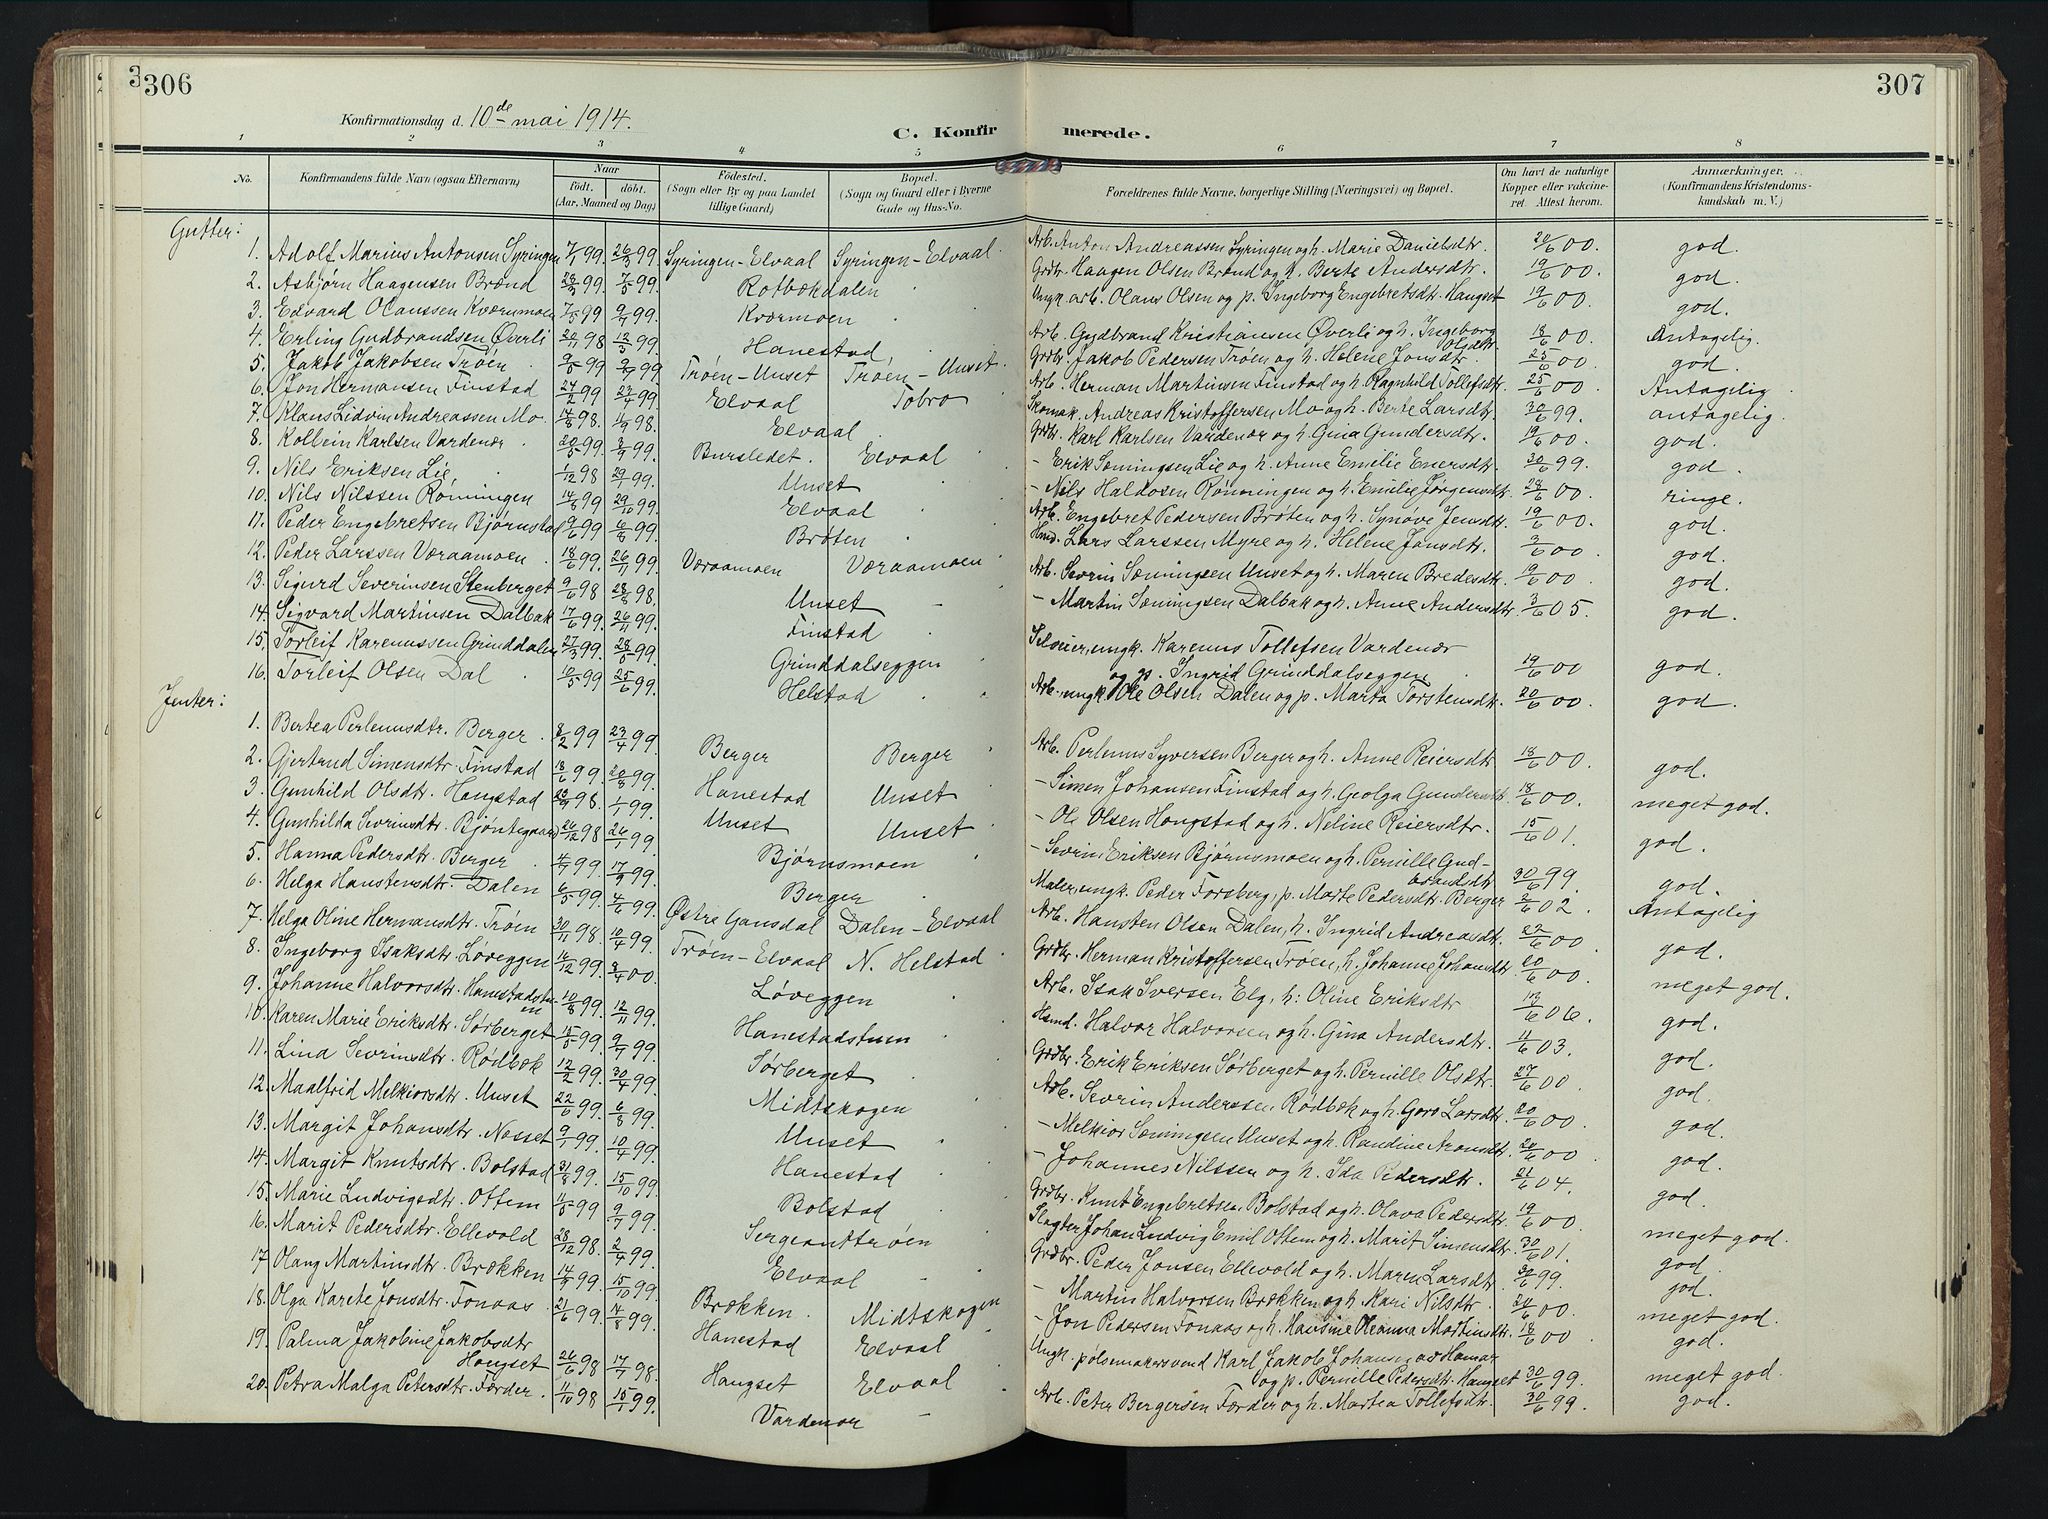 306
307
Konfirmationsdag d. 10de mai 1914.
C. Konfirmerede.
1 2 3 4 5 6 7 8
No.
Konfirmandens fulde Navn (ogsaa Efternavn)
Naar
født. døbt.
(Aar, Maaned og Dag)
Fødested.
(Sogn eller By og paa Landet
tillige Gaard)
Bopæl.
(Sogn og Gaard eller i Byerne
Gade og Hus-No.
Forældrenes fulde Navne, borgerlige Stilling (Næringsvei) og Bopæl.
Om havt de naturlige
Kopper eller vakcine-
ret. Attest herom.
Anmærkninger.
(Konfirmandens Kristendoms-
kundskab m. V.)
Gutter:
1. Adolf Marius Antonsen Syringen 7/1 99. 26/3 99. Syringen-Elvaal Syringen-Elvaal. Arb. Anton Andreassen Syringen og h. Marie Danielsdtr. 20/6 00. god
2. Asbjørn Haagensen Brænd 28/3 99. 7/5 99. Rotbækdalen Grdbr. Haagen Olsen Brænd og h. Berte Andersdtr. 19/6 00. god.
3. Edvard Olaussen Kværnmoen 7/5 99 9/7 99. Kværmoen Ungk. arb. Olaus Olsen og p. Ingeborg Engebretsdtr. Haugset 19/6 00. god.
4. Erling Gudbrandsen Øverli 98 12/3 99. Hanestad Arb. Gudbrand Kristiansen Øverli og h. Ingeborg Olsdtr. 18/6 00. Antagelig.
5. Jakob Jakobsen Trøen 9/5 99 99 Trøen-Unset Trøen-Unset. Grdbr. Jakob Pedersen Trøen og h. Helene Jonsdtr. 25/6 00. god.
6. Jon Hermansen Finstad 24/2 99 23/4 99. Elvaal Tobro Arb. Herman Martinsen Finstad og h. Ragnhild Tollefsdtr. 25/6 00. Antagelig
7. Klaus Lidvin Andreassen Mo. 14/8 98. 98. Elvaal Skomak. Andreas Kristoffersen Mo og h. Berte Larsdtr. 30/6 99. antagelig.
8. Kolbein Karlsen Vardenær 20/5 99. 99. Bursledet. Elvaal Grdbr. Karl Karlsen Vardenær og h. Gina Gundersdtr. 19/6 00. god.
9. Nils Eriksen Lie 1/12 98 29/1 99. Unset - Erik Sæmingsen Lie og h. Anne Emilie Enersdtr. 30/6 99. god.
10. Nils Nilssen Rønningen 14/8 99 29/10 99. Elvaal - Nils Haldosen Rønningen og h. Emilie Jørgensdtr. 28/6 00. ringe.
11. Peder Engebretsen Bjørnstad 9/6 99 6/8 99. Brøten Arb. Engebret Pedersen Brøten og h. Synøve Jensdtr. 19/6 00. god.
12. Peder Larssen Væraamoen 18/6 99. 26/11 99. Væraamoen Væraamoen Hmd. Lars Larssen Myre og h. Helene Jonsdtr. 3/6 00. god.
13. Sigurd Severinsen Stenberget 9/6 98 28/8 98. Unset Arb. Sevrin Sæmingsen Unset og h. Maren Bredesdtr. 19/6 00. god.
14. Sigvard Martinsen Dalbak 17/6 99. 26/11 99. Finstad - Martin Sæmingsen Dalbak og h. Anne Andersdtr. 3/6 05. god.
15. Torleif Karenussen Grinddalen 27/3 99. 28/5 99. Grinddalseggen Selveier, ungk. Karenus Tollefsen Vardenær
og p. Ingrid Grinddalseggen 19/6 00 god.
16. Torleif Olsen Dal 10/5 99 25/6 99. Helstad Arb. ungk. Ole Olsen Dalen og p. Marta Torstensdtr. 20/6 00. god.
Jenter:
1. Bertea Perlemusdtr. Berger. 8/2 99 23/4 99. Berger Berger Arb. Perlemus Syversen Berger og h. Anne Reiersdtr 18/6 00. god.
2. Gjertrud Simensdtr. Finstad 18/6 99. 20/8 99. Hanestad Unset - Simen Johansen Finstad og h. Geolga Gundersdtr. 18/6 00. meget god.
3. Gunhild Olsdtr. Hongstad 98. 1/1 99. Unset Unset - Ole Olsen Hongstad og h. Neline Reiersdtr. 15/6 01. god.
4. Gunhilda Sevrinsdtr. Bjøntegaard 26/12 98 26/1 99. Bjørnsmoen - Sevrin Eriksen Bjørnsmoen og h. Pernille Gud-
brandsdtr 30/6 99. god.
5. Hanna Pedersdtr. Berger 4/7 99. 17/9 99. Berger Maler, ungk. Peder Forsberg, p. Marte Pedersdtr. Berger 2/6 02. Antagelig
6. Helga Hanstensdtr. Dalen 6/5 99. 4/6 99. Østre Gansdal Dalen-Elvaal Arb. Hansten Olsen Dalen, h. Ingrid Andreasdtr. 22/6 00. god.
7. Helga Oline Hermansdtr. Trøen 30/11 98. 10/4 99. Trøen-Elvaal N. Helstad. Grdbr. Herman Kristoffersen Trøen, h. Johanne Johansdtr. 20/6 00. meget god.
8. Ingeborg Isaksdtr. Løveggen 14/12 99. 8/4 00. Løveggen Arb. Isak Iversen Elg, h: Oline Eriksdtr 13/6 06. god.
9. Johanne Halvorsdtr. Hanestadstuen 10/8 99. 12/11 99. Hanestadstuen Hsmd. Halvor Halvorsen og h. Gina Andersdtr. 11/6 03. god.
10. Karen Marie Eriksdtr. Sørberget 15/5 99. 9/7 99. Sørberget Grdbr. Erik Eriksen Sørberget og h. Pernille Olsdtr. 27/6 00. god.
11. Lina Sevrinsdtr. Rødbæk 12/2 99. 30/4 99. Midtskogen Arb. Sevrin Anderssen Rødbæk og h. Goro Larsdtr. 20/6 00. god.
12. Maalfrid Melkiorsdtr. Unset 22/6 99. 6/8 99. Unset - Melkior Sæmingsen Unset og h. Randine Aronsdtr. 20/6 00. god.
13. Margit Johansdtr. Nesset 9/1 99. 10/4 99. Hanestad - Johannes Nilssen og h. Ida Pedersdtr. 21/6 04. god.
14. Margit Knutsdtr. Bolstad 31/8 99. 15/10 99. Bolstad Grdbr. Knut Engebretsen Bolstad og h. Olava Pedersdtr. 19/6 00. meget god.
15. Marie Ludvigsdtr. Ottem 11/5 99 9/7 99. Sergeanttrøen Slagter Johan Ludvig Emil Ottem og h. Marit Simensdtr. 30/6 01. god.
16. Marit Pedersdtr. Ellevold 28/12 98. 2/4 99. Elvaal Grdbr. Peder Jonsen Ellevold og h. Maren Larsdtr. 30/6 99. god.
17. Olaug Martinsdtr. Brækken 14/9 99. 15/10 99. Brækken. Midtskogen - Martin Halvorsen Brækken og h. Kari Nilsdtr. 24/6 00. meget god.
18. Olga Karete Jonsdtr. Fonaas. 21/6 99. 14/8 99. Hanestad Elvaal - Jon Pedersen Fonaas og h. Hansine Oleanna Martinsdtr. 18/6 00. god.
19. Palma Jakobine Jakobsdtr
Haugset 26/6 98 17/7 98. Haugset Elvaal Ungk. pølsemakersvend Karl Jakob Johansen av Hamar
og p. Pernille Pedersdtr. Haugset 30/6 99. meget god.
20. Petra Malga Petersdtr. Færder. 11/10 98 15/1 99. Vardenær Arb. Peter Bergersen Færder og h. Martea Tollefsdtr. 30/6 99. god.